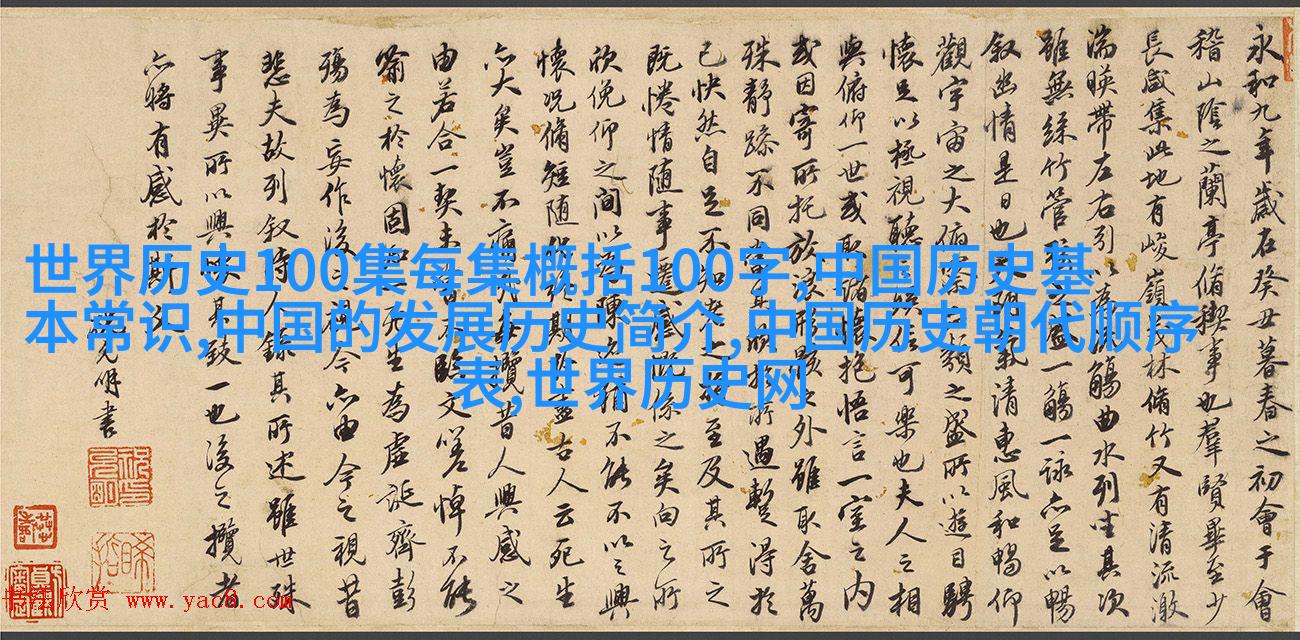 世界历史100集每集概括100字,中国历史基
本常识,中国的发展历史简介,中国历史朝代顺序
表,世界历史网
永和九年歲在癸丑暮春之初會于會
稽山陰之蘭亭脩禊事也羣賢畢至少
長咸集此地有峻嶺茂林脩竹又有清流激
湍暎帶左右引以為流觴曲水列坐其次
雖無絲竹管之盛一觴一詠亦足以暢
叙幽情是日也朗氣清惠風和暢仰
觀宇宙之大俯察類之盛所以遊目騁
懷足以極視聽娛信可樂也夫人之相
與俯仰一世或取諸懷抱悟言一室之內
或因寄所托放浪形骸之外雖取舍萬
殊靜躁不同當其於所遇暫得於
己快然自足不知老之至及其所之
既惓情随事遷感慨係之矣向之所
欣俛仰之間以為陳猶不能不以之興
懷况脩短随期於盡古人云死生
亦大矣豈不痛每攬昔人興感之
由若合一契未嘗不臨文嗟悼不能
喻之於懷固知死生為虛誕齊彭
殤為妄作後之視今亦由今之視昔
悲夫故列叙時人錄其所述雖世殊
事異所以興其致一也後之攬者
亦將有感於斯文
允明書
欣赏 www.yac8.com